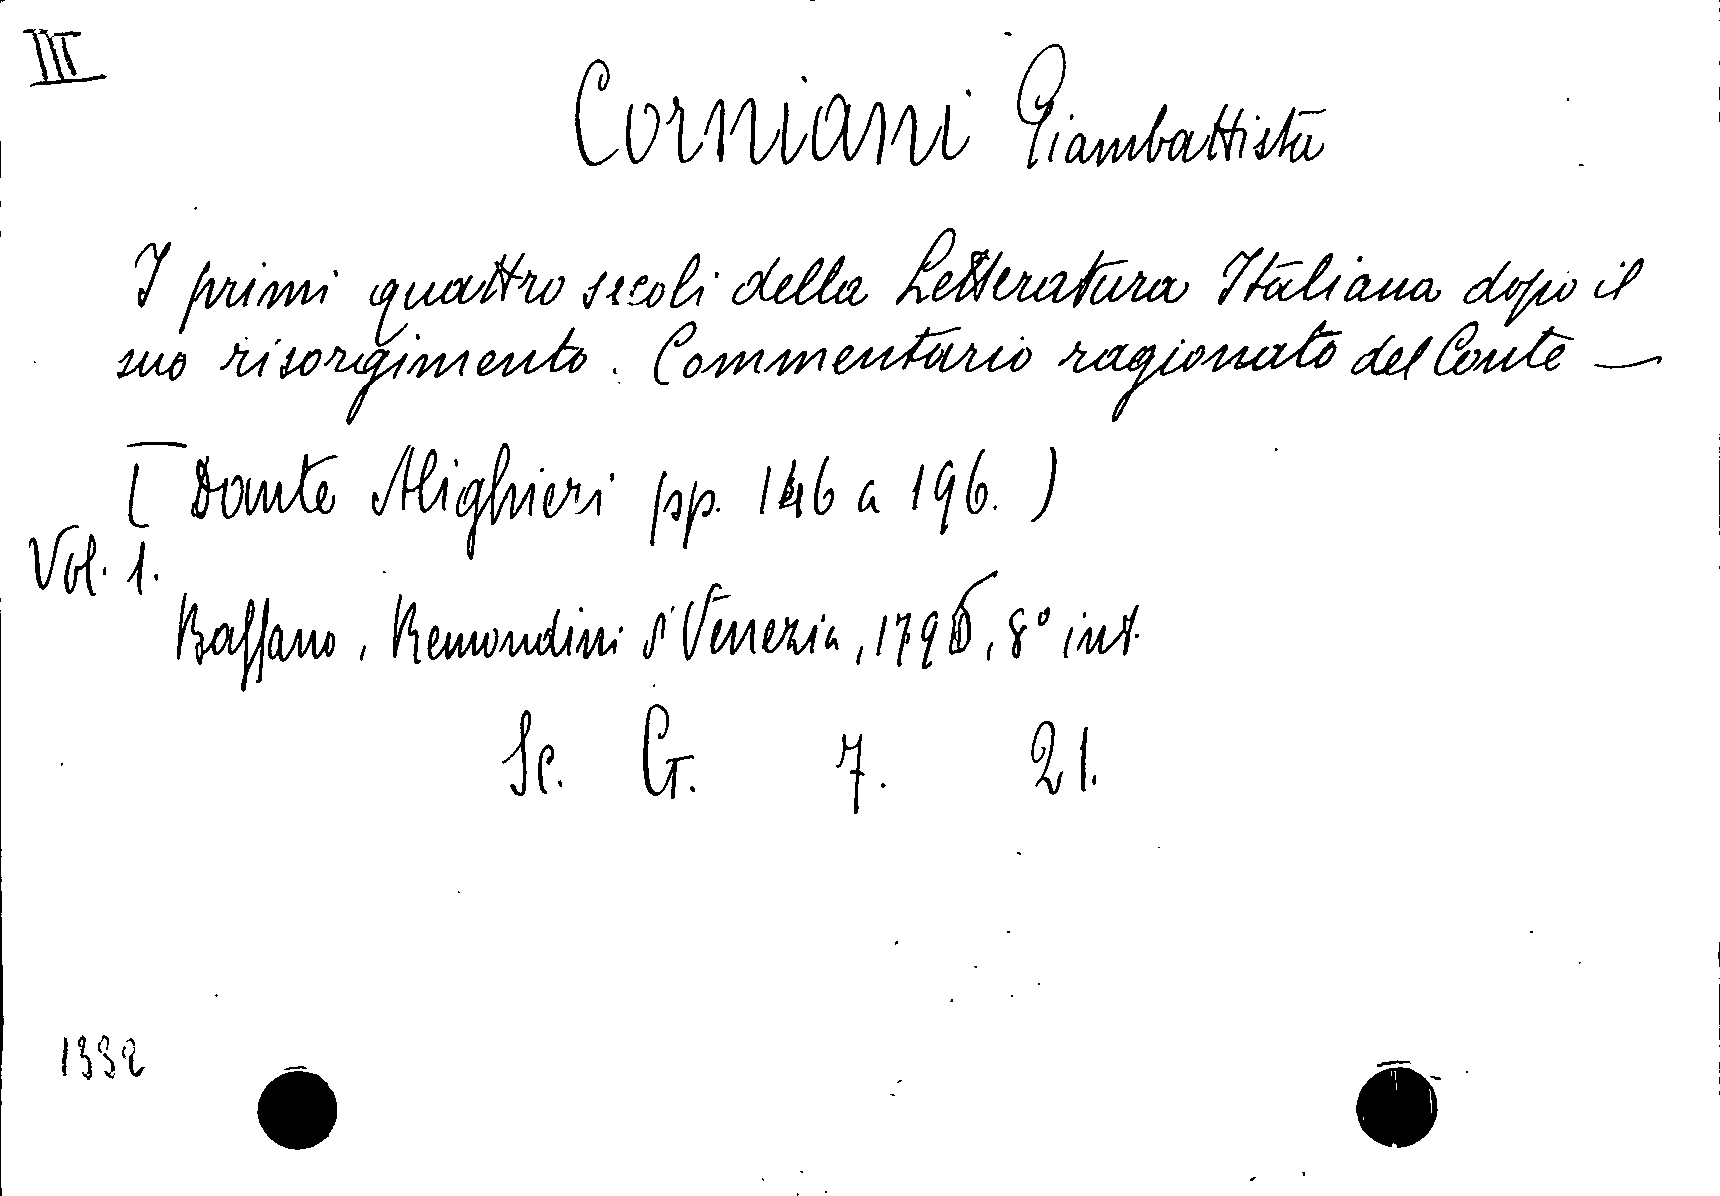 III
Corniani Giambattista
I primi quattro secoli della Letteratura Italiana dopo il
suo risorgimento. Commentario ragionato del Conte —
( Dante Alighieri pp. 146 a 196. )
Vol. 1.
Bassano, Remondini di Venezia, 1796, 8° int.
Sc. G. 7. 21.
1332